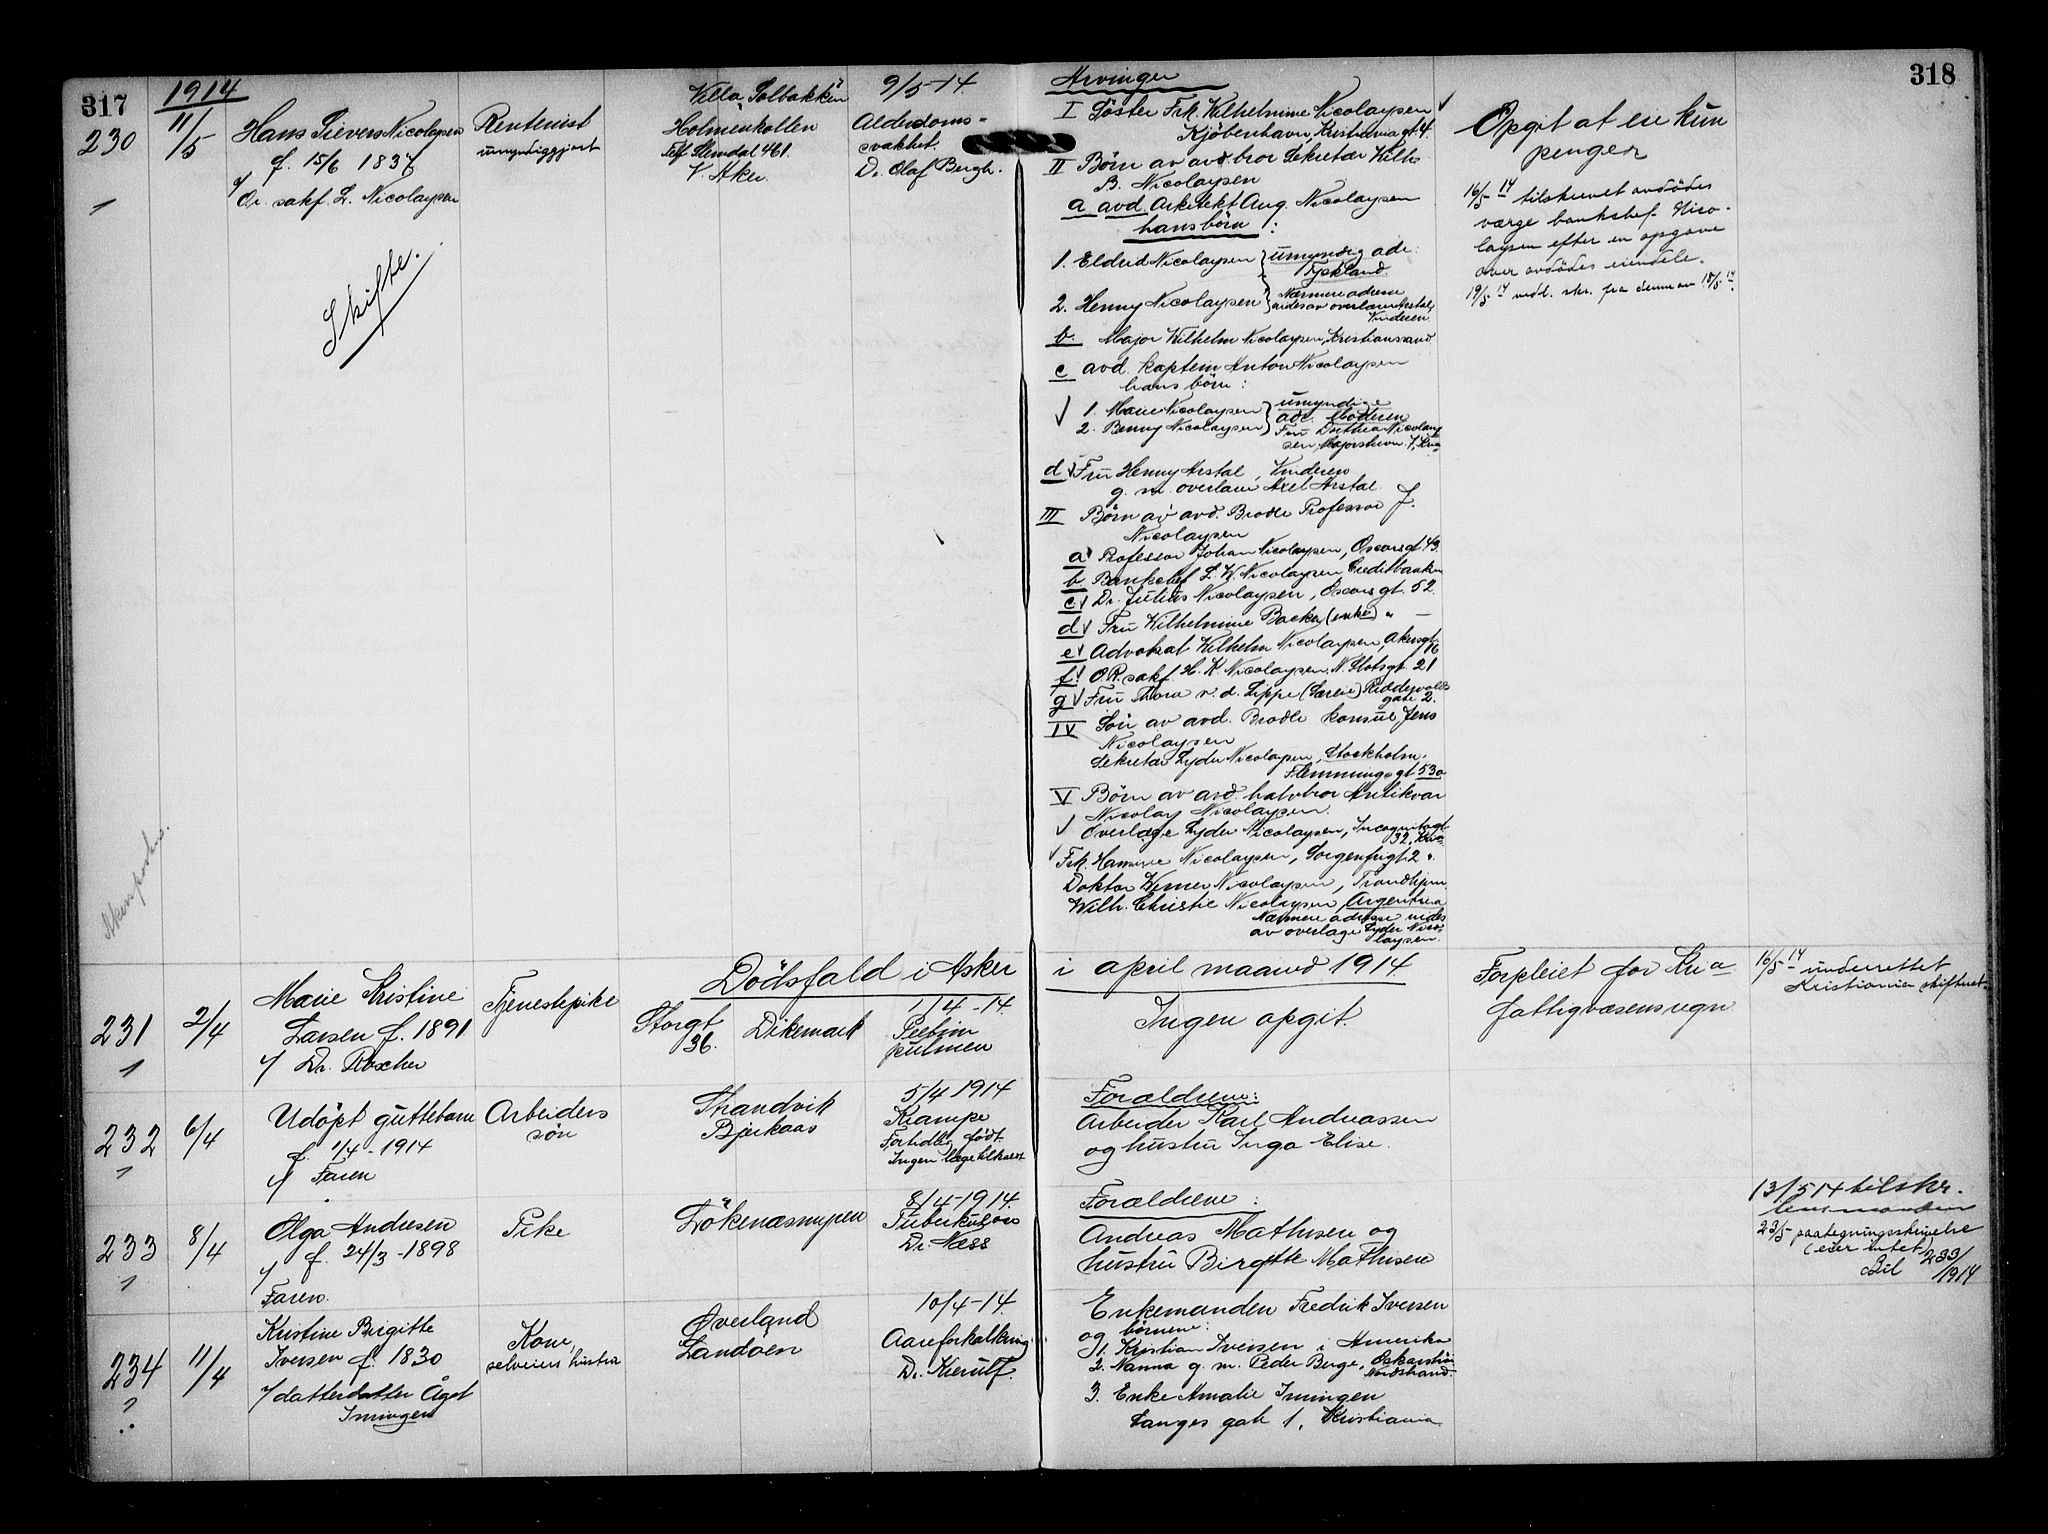 317
1914
230
11/5
Hans Sievers Nicolaysen
f. 15/6 1837
v/
Or. sakf. L. Nicolaysen
Skifte.
Rentenist
umyndiggjort
Villa Solbakken
Holmenkollen
Telf Slemdal 461.
V. Aker.
9/5-14
Alderdoms-
svakhet.
Dr. Olaf Bergh.
Arvinger
I Söster Frk. Wilhelmine Nicolaysen
Kjöbenhavn, Kristiania gt. 4.
II Börn av avd. bror Sekretær Wilh.
B. Nicolaysen
a avd. Arkitekt Aug. Nicolaysen
hans börn:
1. Eldrid Nicolaysen } umyndig adr.
2. Henny Nicolaysen } Nærmere adresse
Vinderen
b. Major Wilhelm Nicolaysen, Kristianssand
c avd. kaptein Anton Nicolaysen
hans börn:
1. Marie Nicolaysen } umyndige
2. Benny Nicolaysen } adr. Moderen
Fru Dorthea Nicolay
sen Majorstuvn. 7, Kria
d Fru Henny Arstal, Vinderen
g. m. overlærer Axel Arstal.
III Börn av avd. Brodr Professor J.
Nicolaysen
a Professor Johan Nicolaysen, Oscarsgt 43.
b. Bankchef L. W. Nicolaysen Creditbanken
c Dr. Julius Nicolaysen, Oscars gt. 52.
d Fru Wilhelmine Backer (enke) " —
e Advokat Wilhelm Nicolaysen, Akersgt. 16
f O.R. sakf. H. K. Nicolaysen N. Slotsgt. 21
g Fru Thora v. d. Lippe Riddervolds
gate 2.
IV Sön av avd. Brodr konsul Jens
Nicolaysen
Sekretær Lyder Nicolaysen, Stockholm.
Flemminggt 53a
V Börn av avd. halvbror Antikvar
Nicolay Nicolaysen.
Overlæge Lyder Nicolaysen, Incognitogt
32, Kria.
Frk. Hansine Nicolaysen, Sorgenfrigt. 2 "
Doktor Werner Nicolaysen, Trondhjem
Wilh. Christie Nicolaysen, Argentina
Nærmere adresse vides
av overlæge Lyder Nico-
laysen.
318
Opgit at eie kun
penger
16/5 14 tilskrevet avdödes
værge bankchef Nico-
laysen efter en opgave
over avdödes eiendele.
19/5 14 vedl. skr. fra denne av 18/5 14.
Dödsfald i Asker i april maaned 1914
231
2/4
Marie Kristine
Larsen f. 1891
v/ Dr. Roscher
Tjenestepike
Storgt
36.
Dikemark
1/4-14.
pulmon
Ingen opgit.
Forpleiet for Kria
fattigvæsens regn
16/5 14 underrettet
Kristiania skifteret
232
6/4
Udöpt guttebarn
f. 1/4-1914
v/ Faren
Arbeiders
sön
Strandvik
Bjerkaas
5/4 1914
Krampe
Fortidlig födt
Ingen læge tilkaldt
Forældrene:
Arbeider Karl Andreassen
og hustru Inga Elise.
233
8/4
Olga Andresen
f. 24/3-1898
v/
Faren.
Pike
Lökenæsmyren
8/4-1914.
Tuberkulose
Dr. Næss
Forældrene:
Andreas Mathisen og
hustru Birgitte Mathisen
13/5 14 tilskr.
lensmanden
23/5 paategningsskrivelse
(eier intet)
Bil 233/1914
234
11/4
Kristine Birgitte
Iversen f. 1830
v/ datterdatter Ågot
Imingen
Kone,
selveiers hustru
Øverland
Landöen
10/4-14.
Aareforkalkning
Dr. Kierulf.
Enkemanden Fredrik Iversen
og börnene:
1. Kristian Iversen i Amerika
2. Nanna g. m. Peder Berge,
Nordstrand.
3. Enke Amalie Imingen
Langes gate 1, Kristiania